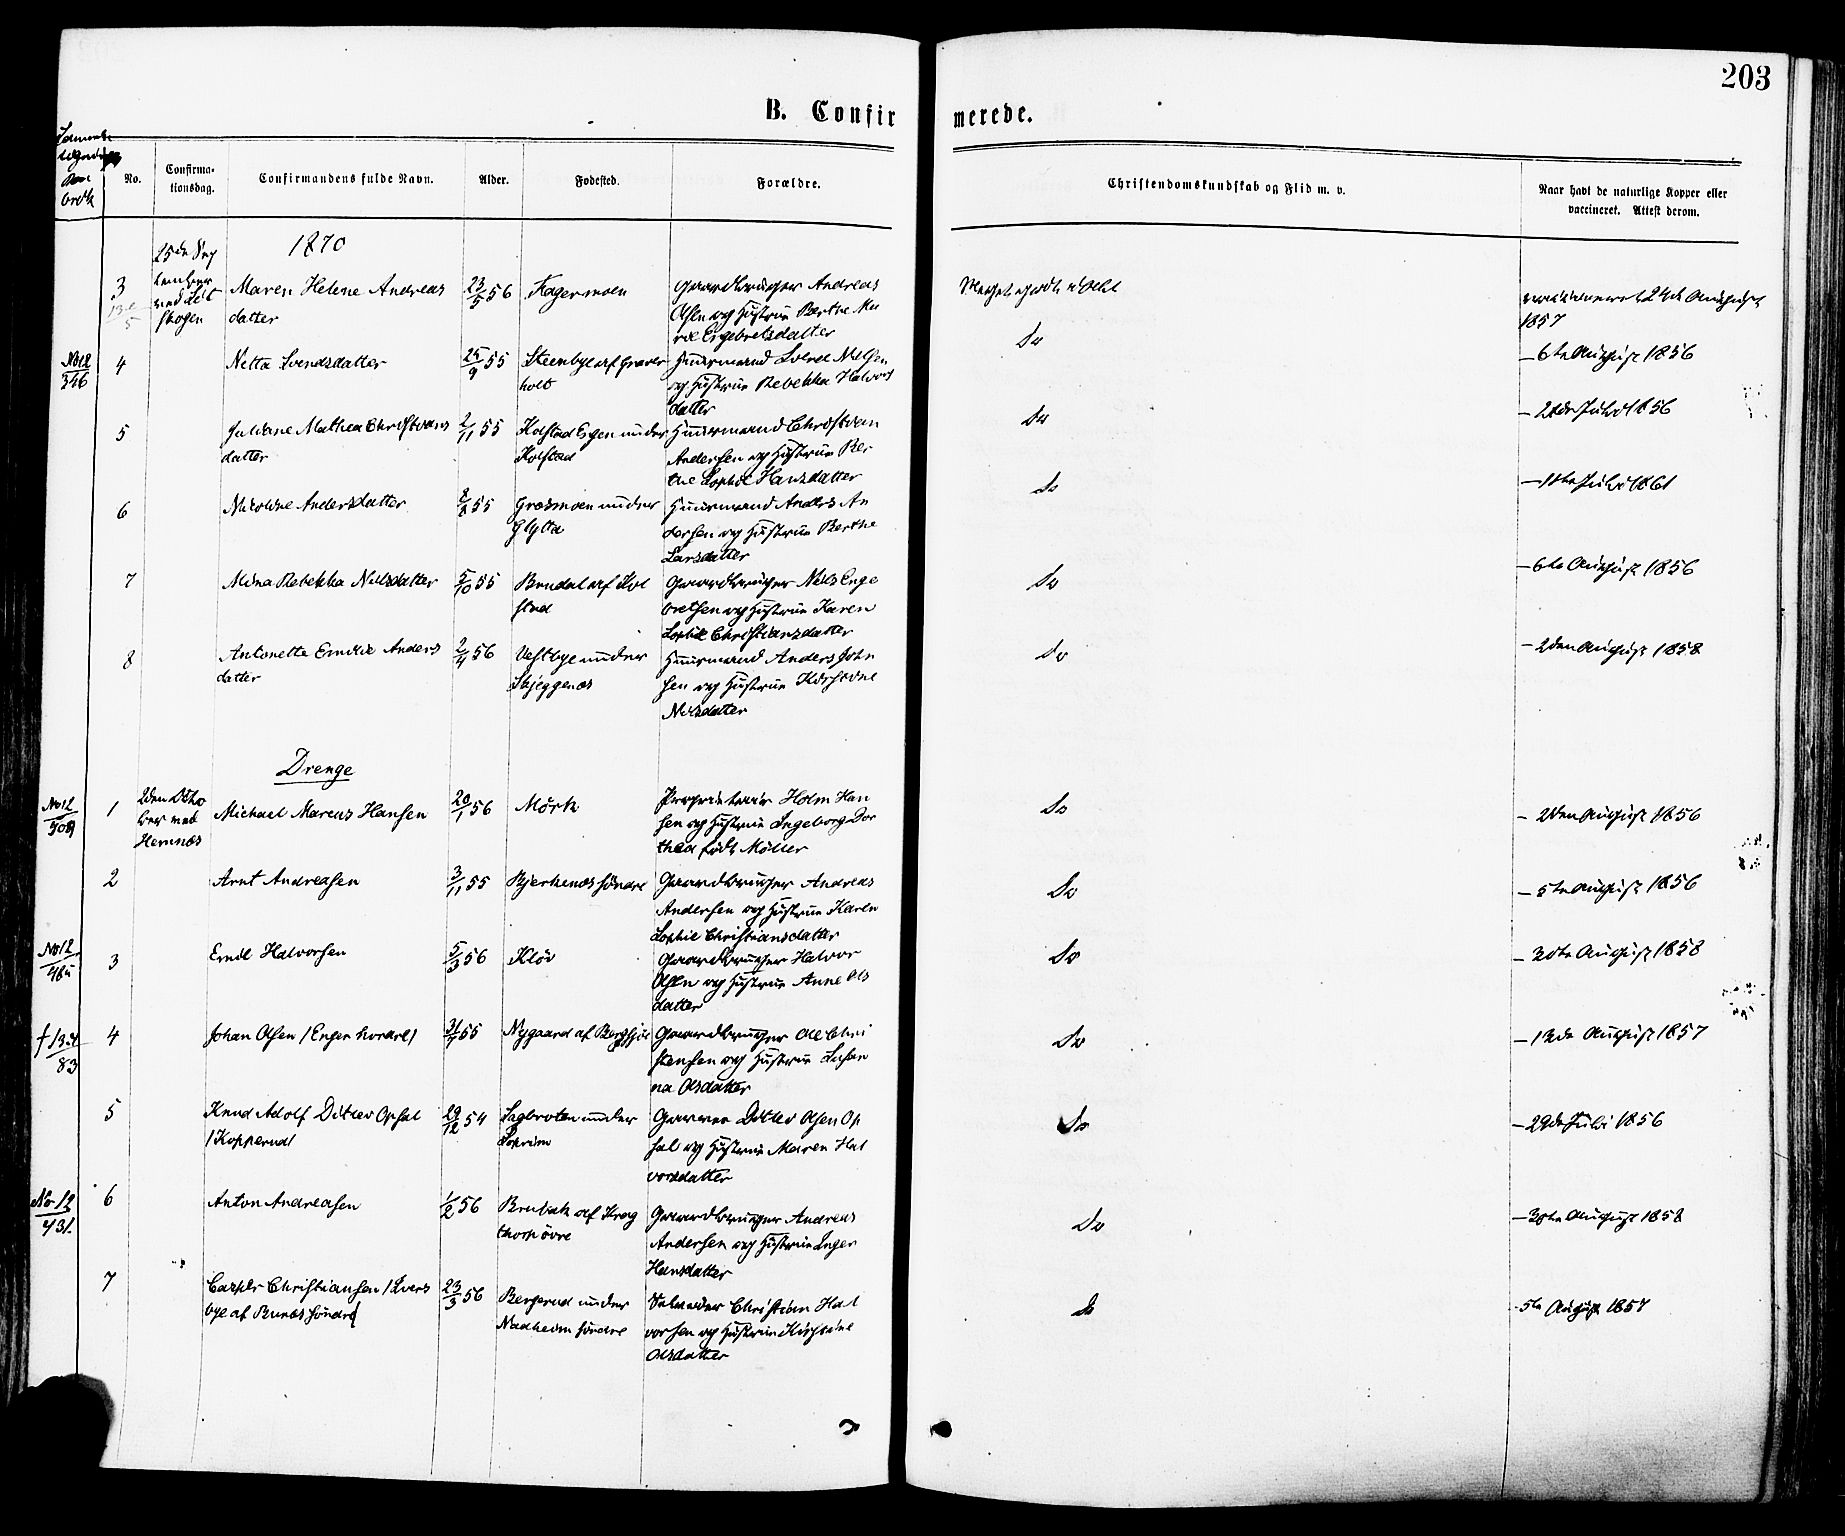 203
B. Confirmerede.
No.
Confirma-
tionsdag.
Confirmandens fulde Navn.
Alder.
Fodested.
Forældre.
Christendomskundskab og Flid m. v.
Naar havt de naturlige Kopper eller
vaccineret. Attest derom.
1870
25de Sep
tember
3
Maren Helene Andreas
datter
23/5 56
Kagermoen
Gaardbruger Andreas
Olsen og Hustrue Berthe Ma
rie Engebretsdatter
Meget godt
vaccineret 24de August
1857
No 12
346
4
Netta Svendsdatter
25/9 55
Steenbye af Graver
holt
Huusmand Svend Nilsen
og Hustrue Rebekka Halvors
datter
Do
– 6te August 1856
5
Juliane Mathea Christians
datter
2/11 55
Kolstad Eyen under
Kolstad
Huusmand Christian
Andersen og Hustrue Ber
the Sophie Hansdatter
Do
Juli 1856
6
Nicoline Andersdatter
55
Græsmoen under
Huusmand Anders An
dersen og Hustrue Berthe
Larsdatter
Do
Juli 1861
7
Mina Rebekka Nilsdatter
5/10 55
Brudal af Kol
stad
Gaardbruger Nils Enge
bretsen og Hustrue Karen
Sophie Christiansdatter
Do
– 6te August 1856
8
Antonette Emilie Anders
datter
2/4 56
Vestbye under
Skjeggenæs
Huusmand Anders John
sen og Hustrue Kirstine
Nilsdatter
Do
– 2den August 1858
Drenge
No 12
509
1
2den Octo
ber ved
Hemnæs
Michael Marcus Hansen
20/1 56
Mörk
Proprietair Holm Han
sen og Hustrue Ingeborg Dor
thea født Möller
Do
– 2den August 1856
2
Arnt Andreasen
3/11 55
Bjerkenæs söndre
Gaardbruger Andreas
Andersen og Hustrue Karen
Sophie Christiansdatter
Do
– 5te August 1856
No 12
3
Emil Halvorsen
5/3 56
Klöv
Gaardbruger Halvor
Olsen og Hustrue Anne Ols
datter
Do
– 30te August 1858
83
4
Johan Olsen
55
Nygaard af
Gaardbruger Ole Chri
stensen og Hustrue
na Olsdatter
Do
August 1857
5
Knud Adolf Ditlev Opsal
/Kopperud
29/12 54
Sagbroten under
Garver Ditlev Olsen Op
sal og Hustrue Maren Hal
vorsdatter
Do
– 29de Juli 1856
No 12
431.
6
Anton Andreasen
1/2 56
Brubak af Krog
torp övre
Gaardbruger Andreas
Andersen og Hustrue Inger
Hansdatter
Do
– 30te August 1858
7
Casper Christiansen /Ivers
bye af Bunæs söndre/
23/3 56
Bergerud under
Nadheim söndre
Christian Hal
vorsen og Hustrue Kirstine
Olsdatter
Do
5te August 1857